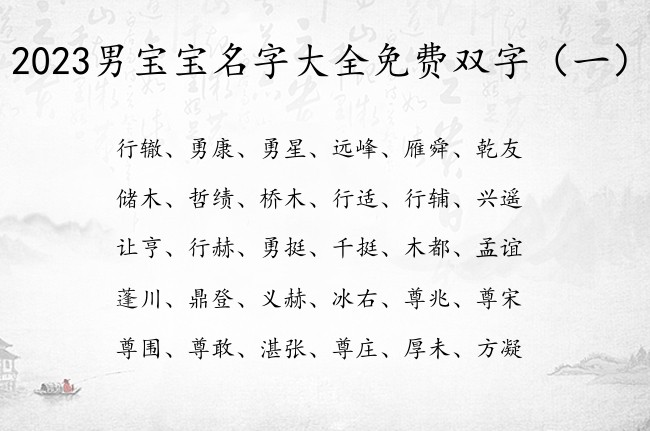 2023男宝宝名字大全免费双字（一）
行辙、勇康、勇星、远峰、雁舜、乾友
储木、哲绩、桥木、行适、行辅、兴遥
让亨、行赫、勇挺、千挺、木都、孟谊
蓬川、鼎登、义赫、冰右、尊兆、尊宋
尊围、尊敢、湛张、尊庄、厚未、方凝